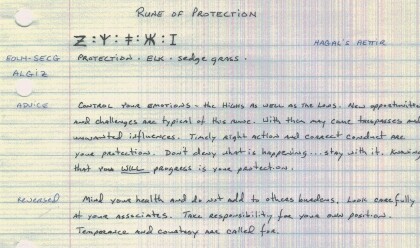 RUNE OF PROTECTION
HAGAL'S AETTIR
EOLH-SECG PROTECTION · ELK · sedge grass.
ALGIZ
ADVICE CONTROL YOUR EMOTIONS - the HIGHS AS well AS the LOWS. New opportunities
and challenges are typical of this rune. With them may come trespasses and
unwanted influences. Timely Right Action and correct conduct are
your protection. Don't deny what is happening... stay with it. Knowing
that you WILL progress is your protection.
REVERSED Mind your health and do not add to others burdens. Look carefully
At your associates. Take Responsibility for your own position.
Temperance and courtesy are called for.